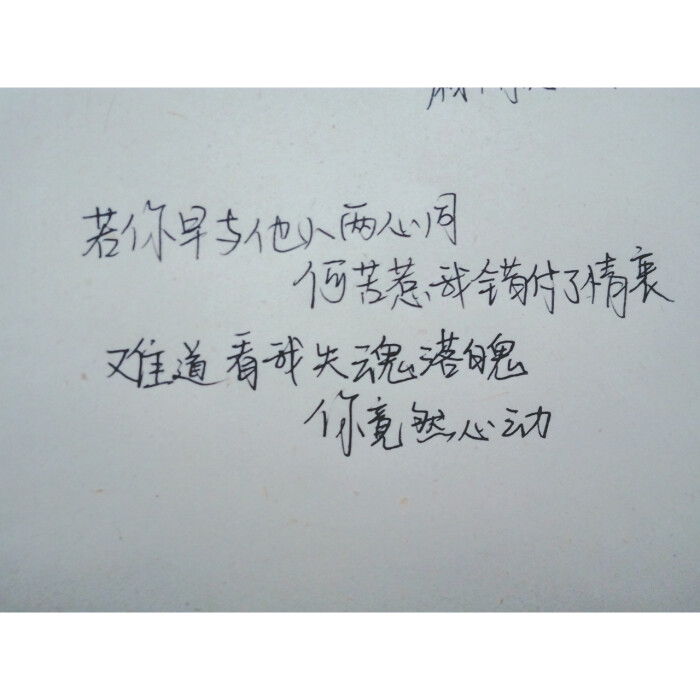 若你早与他人两心同
何苦惹我错付了情衷
难道看我失魂落魄
你竟然心动